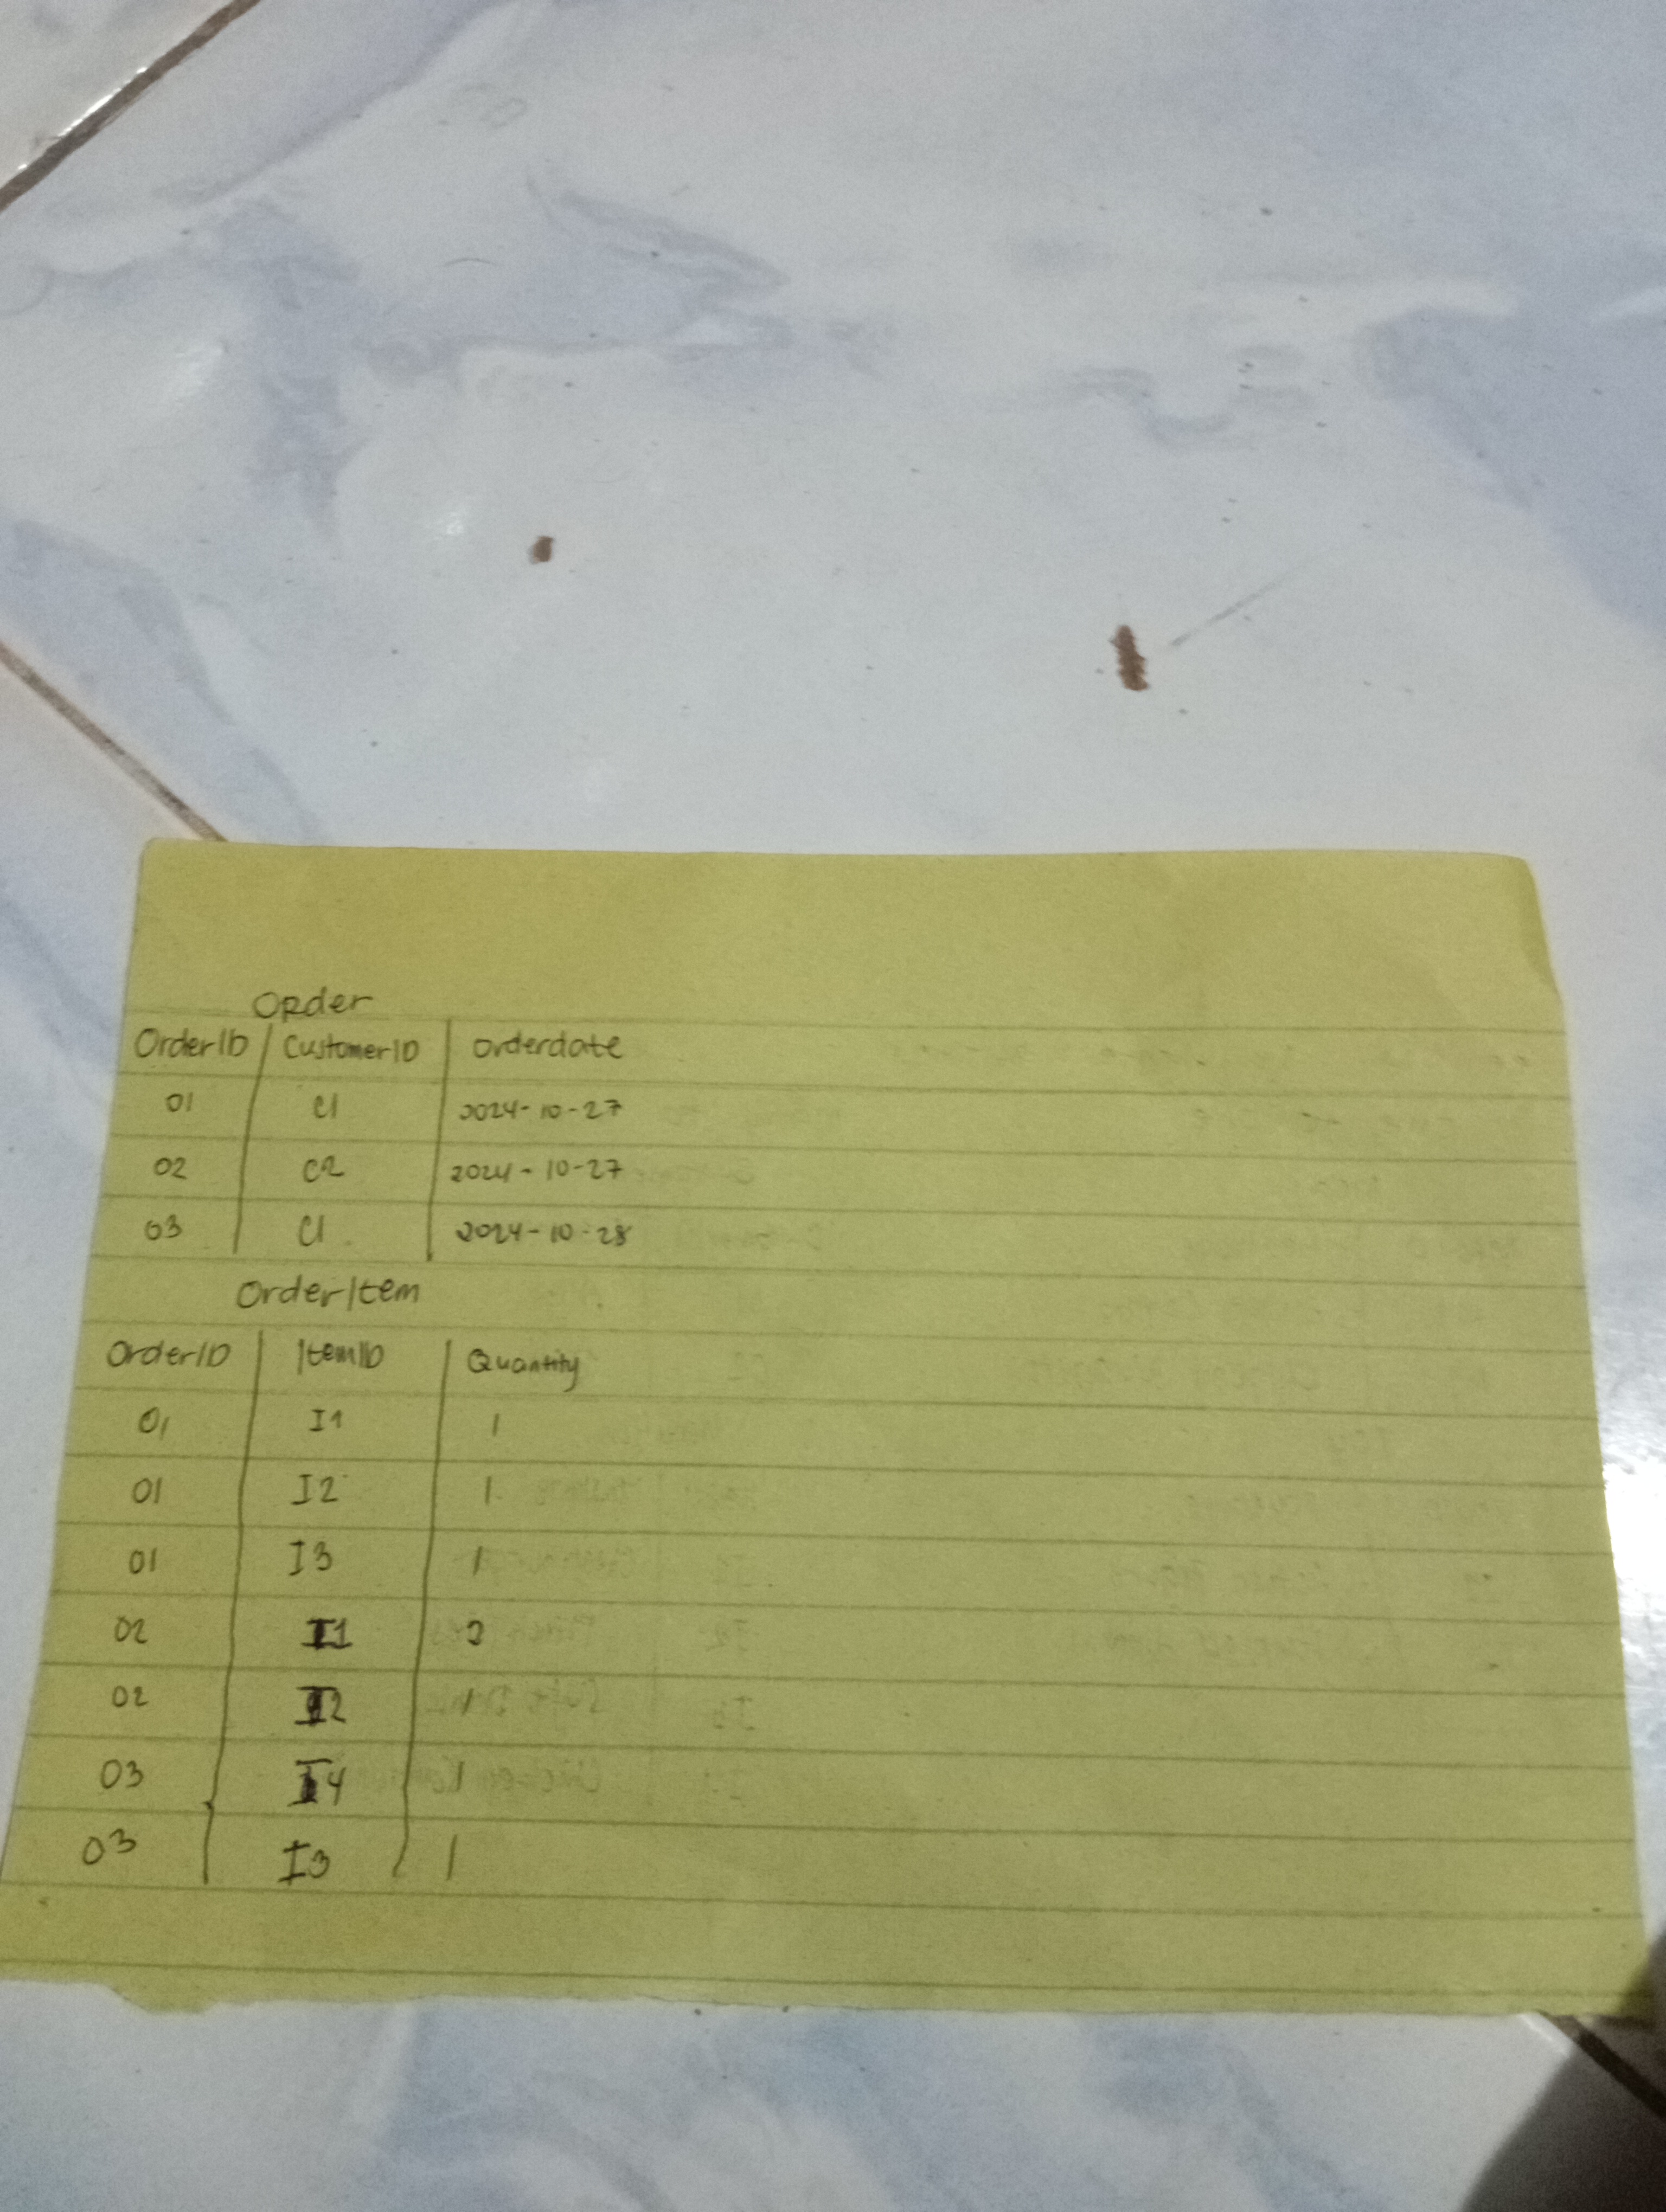 Order
OrderID CustomerID orderdate
01 C1 2024-10-27
02 C2 2024-10-27
03 C1 2024-10-28
OrderItem
OrderID ItemID Quantity
01 I1 1
01 I2 1
01 I3 1
02 I1 2
02 I2 1
03 I4 1
03 I3 1